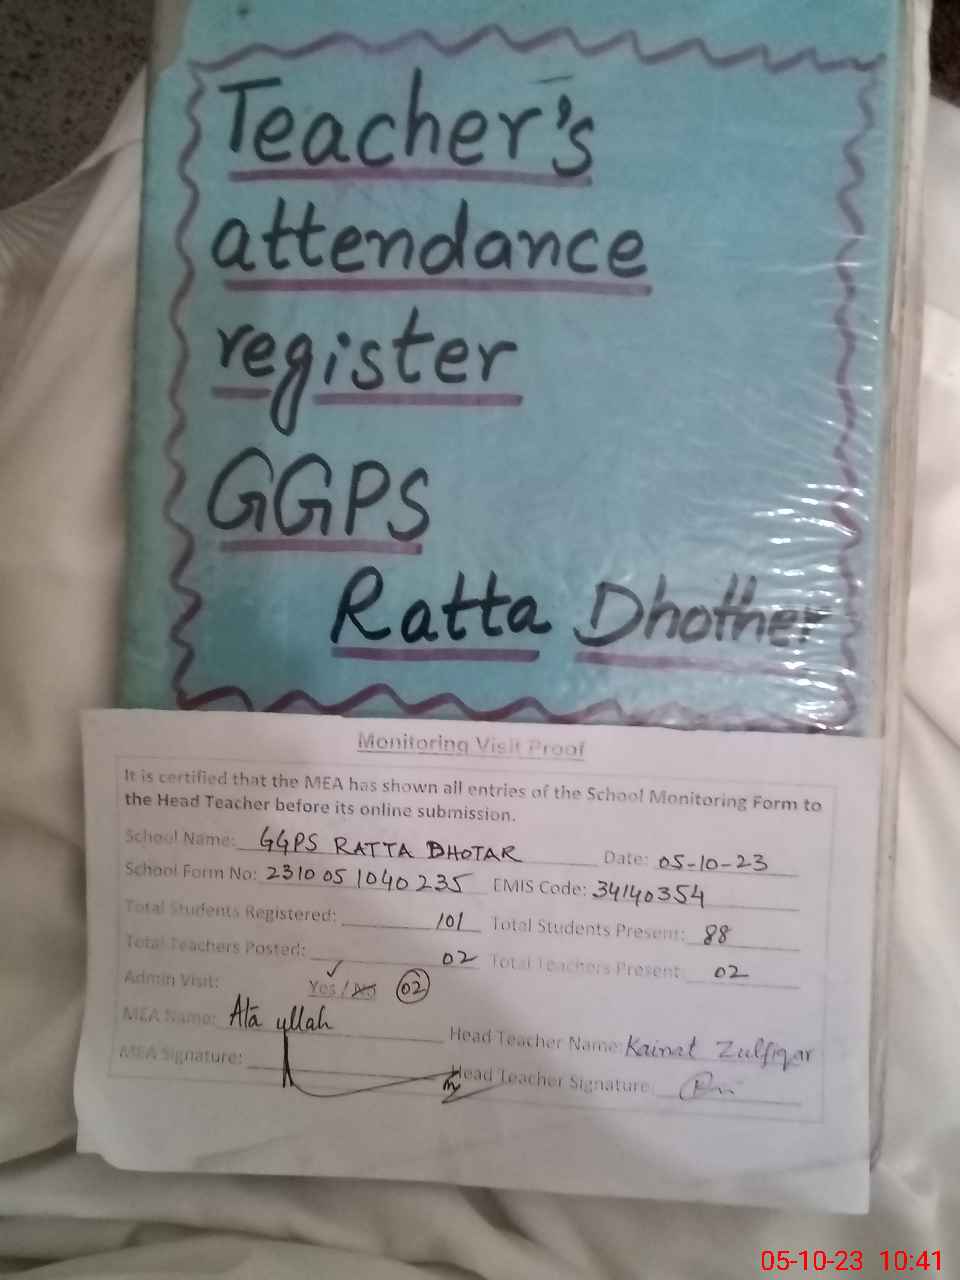 Teacher's
attendance
register
GGPS
Ratta Dhother
Monitoring Visit Proof
It is certified that the MEA has shown all entries of the School Monitoring Form to
the Head Teacher before its online submission.
School Name: GGPS RATTA DHOTAR Date: 05-10-23
School Form No: 2310 05 1040 235 EMIS Code: 34140354
Total Students Registered: 101 Total Students Present: 88
Total Teachers Posted: 02 Total Teachers Present: 02
Admin Visit: Yes / No 02
MEA Name: Ata ullah Head Teacher Name: Kainat Zulfiqar
MEA Signature: Head Teacher Signature:
05-10-23 10:41